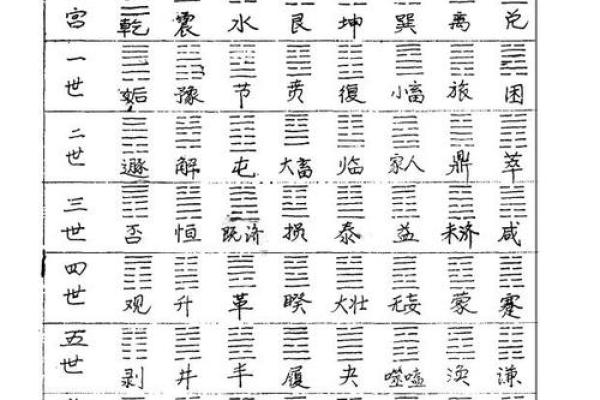 宫 乾 震 水 艮 坤 巽 离 兑
一世 姤 豫 节 贲 復 小畜 旅 困
二世 遯 解 屯 大畜 临 家人 鼎 萃
三世 否 恒 既济 损 泰 益 未济 咸
四世 观 升 革 睽 大壮 无妄 蒙 蹇
五世 剥 井 丰 履 夬 噬嗑 涣 谦